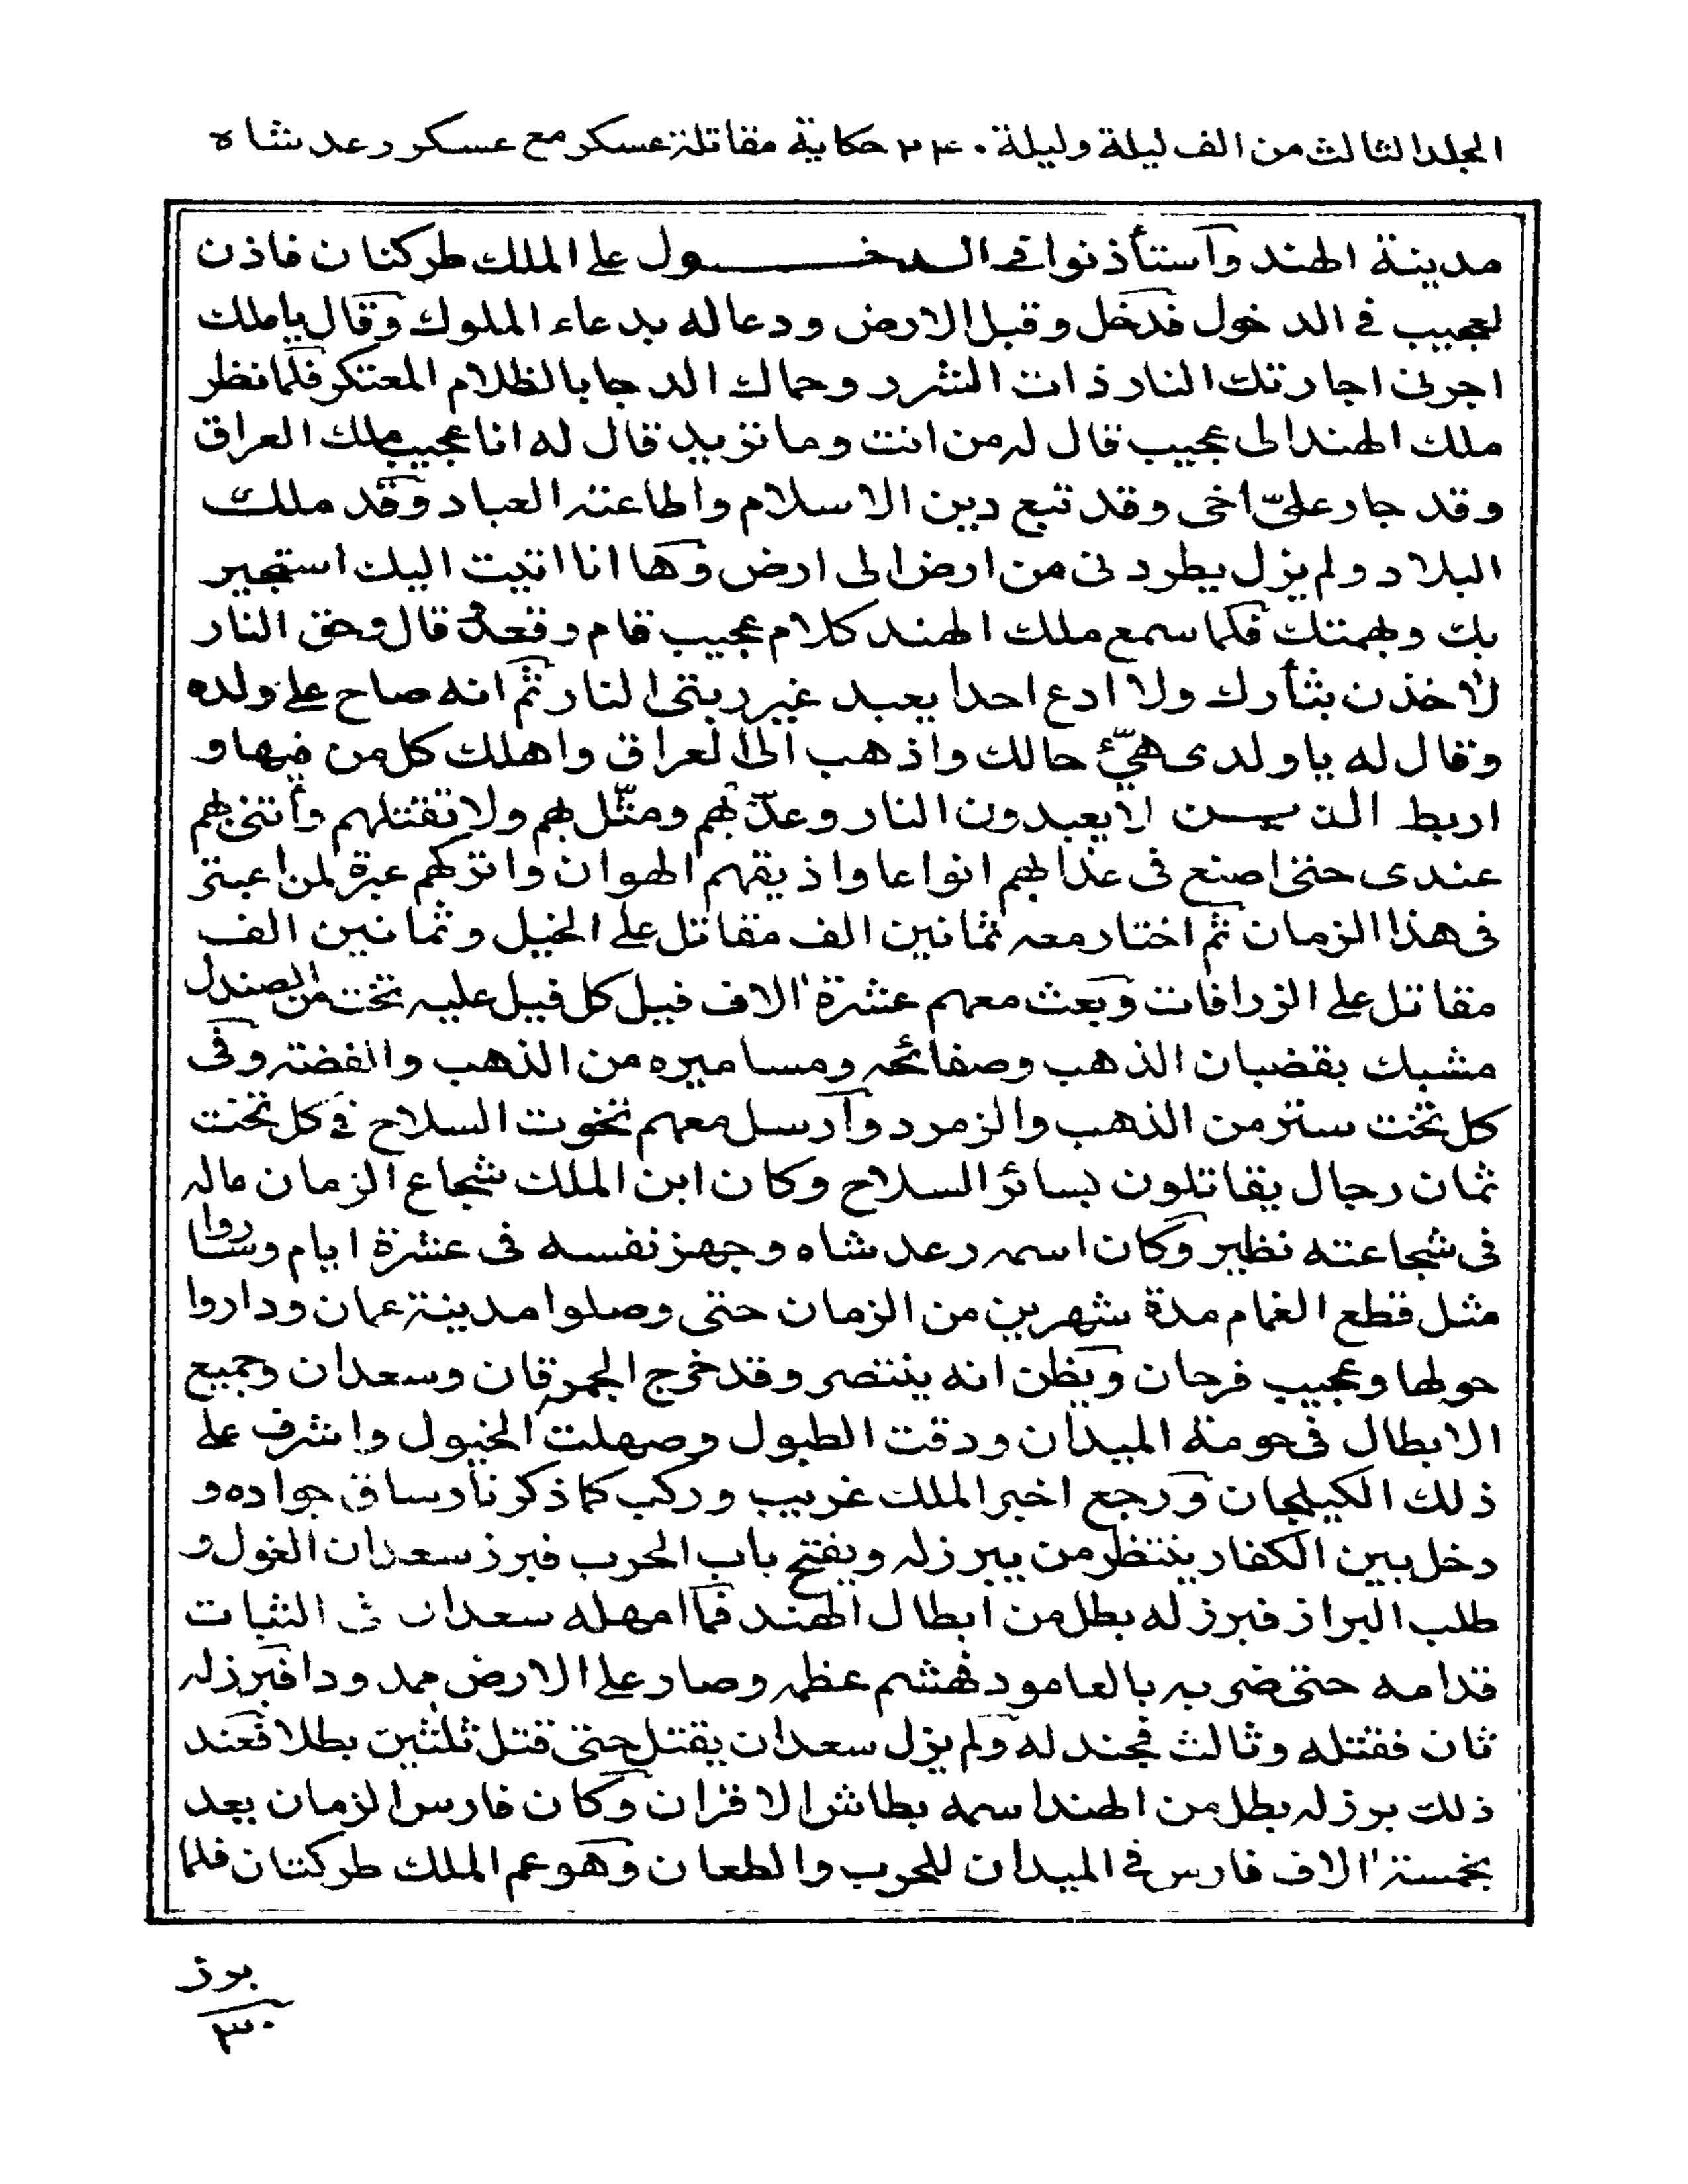 المجلد الثالث من الف ليلة وليلة ٢٣٠ حكاية مقاتلة عسكر مع عسكر رعد شاه
مدينة الهند وآستأذنوا في الدخول على الملك طركنان فاذن
لعجيب في الدخول فدخل وقبل الارض ودعا له بدعاء الملوك وقال يا ملك
اجرنى اجارتك النار ذات الشرر وحماك الدجا بالظلام المعتكر فلما نظر
ملك الهند الى عجيب قال له من انت وما تريد قال له انا عجيب ملك العراق
وقد جار علىّ اخى وقد تبع دين الاسلام واطاعته العباد وقد ملك
البلاد ولم يزل يطردنى من ارض الى ارض وها انا اتيت اليك استجير
بك وبهمتك فلما سمع ملك الهند كلام عجيب قام وقعد و قال وحق النار
لاٰخذن بثأرك ولا ادع احدا يعبد غير ربتى النار ثم انه صاح على ولده
وقال له يا ولدى هيّئ حالك واذهب الى العراق واهلك كل من فيها و
اربط الذيــن لا يعبدون النار وعذّبهم ومثّل بهم ولا تقتلهم وأتنى بهم
عندى حتى اصنع فى عذابهم انواعا واذيقهم الهوان واتركهم عبرة لمن اعتبر
فى هذا الزمان ثم اختار معه ثمانين الف مقاتل على الخيل وثمانين الف
مقاتل على الزرافات وبعث معهم عشرة اٰلاف فيل كل فيل عليه تخت من الصندل
مشبك بقضبان الذهب وصفائحه ومساميره من الذهب والفضة وفى
كل تخت ستر من الذهب والزمرد وآرسل معهم تخوت السلاح في كل تخت
ثمان رجال يقاتلون بسائر السلاح وكان ابن الملك شجاع الزمان ماله
فى شجاعته نظير وكان اسمه رعد شاه وجهز نفسه فى عشرة ايام وساروا
مثل قطع الغمام مدة شهرين من الزمان حتى وصلوا مدينة عمان وداروا
حولها وعجيب فرحان ويظن انه ينتصر وقد خرج الجمرقان وسعدان وجميع
الابطال فى حومة الميدان ودقت الطبول وصهلت الخيول واشرف على
ذلك الكيلجان ورجع اخبر الملك غريب وركب كما ذكرنا وساق جواده و
دخل بين الكفار ينتظر من يبرز له ويفتح باب الحرب فبرز سعدان الغول و
طلب البراز فبرز له بطل من ابطال الهند فما امهله سعدان فى الثبات
قدامه حتى ضربه بالعامود فهشم عظمه وصار على الارض ممدودا فبرز له
ثان فقتله وثالث فجندله ولم يزل سعدان يقتل حتى قتل ثلٰثين بطلا فعند
ذلك برز له بطل من الهند اسمه بطاش الاقران وكان فارس الزمان يعد
بخمسة اٰلاف فارس في الميدان للحرب والطعان وهو عم الملك طركنان فلما
برز
٣٠